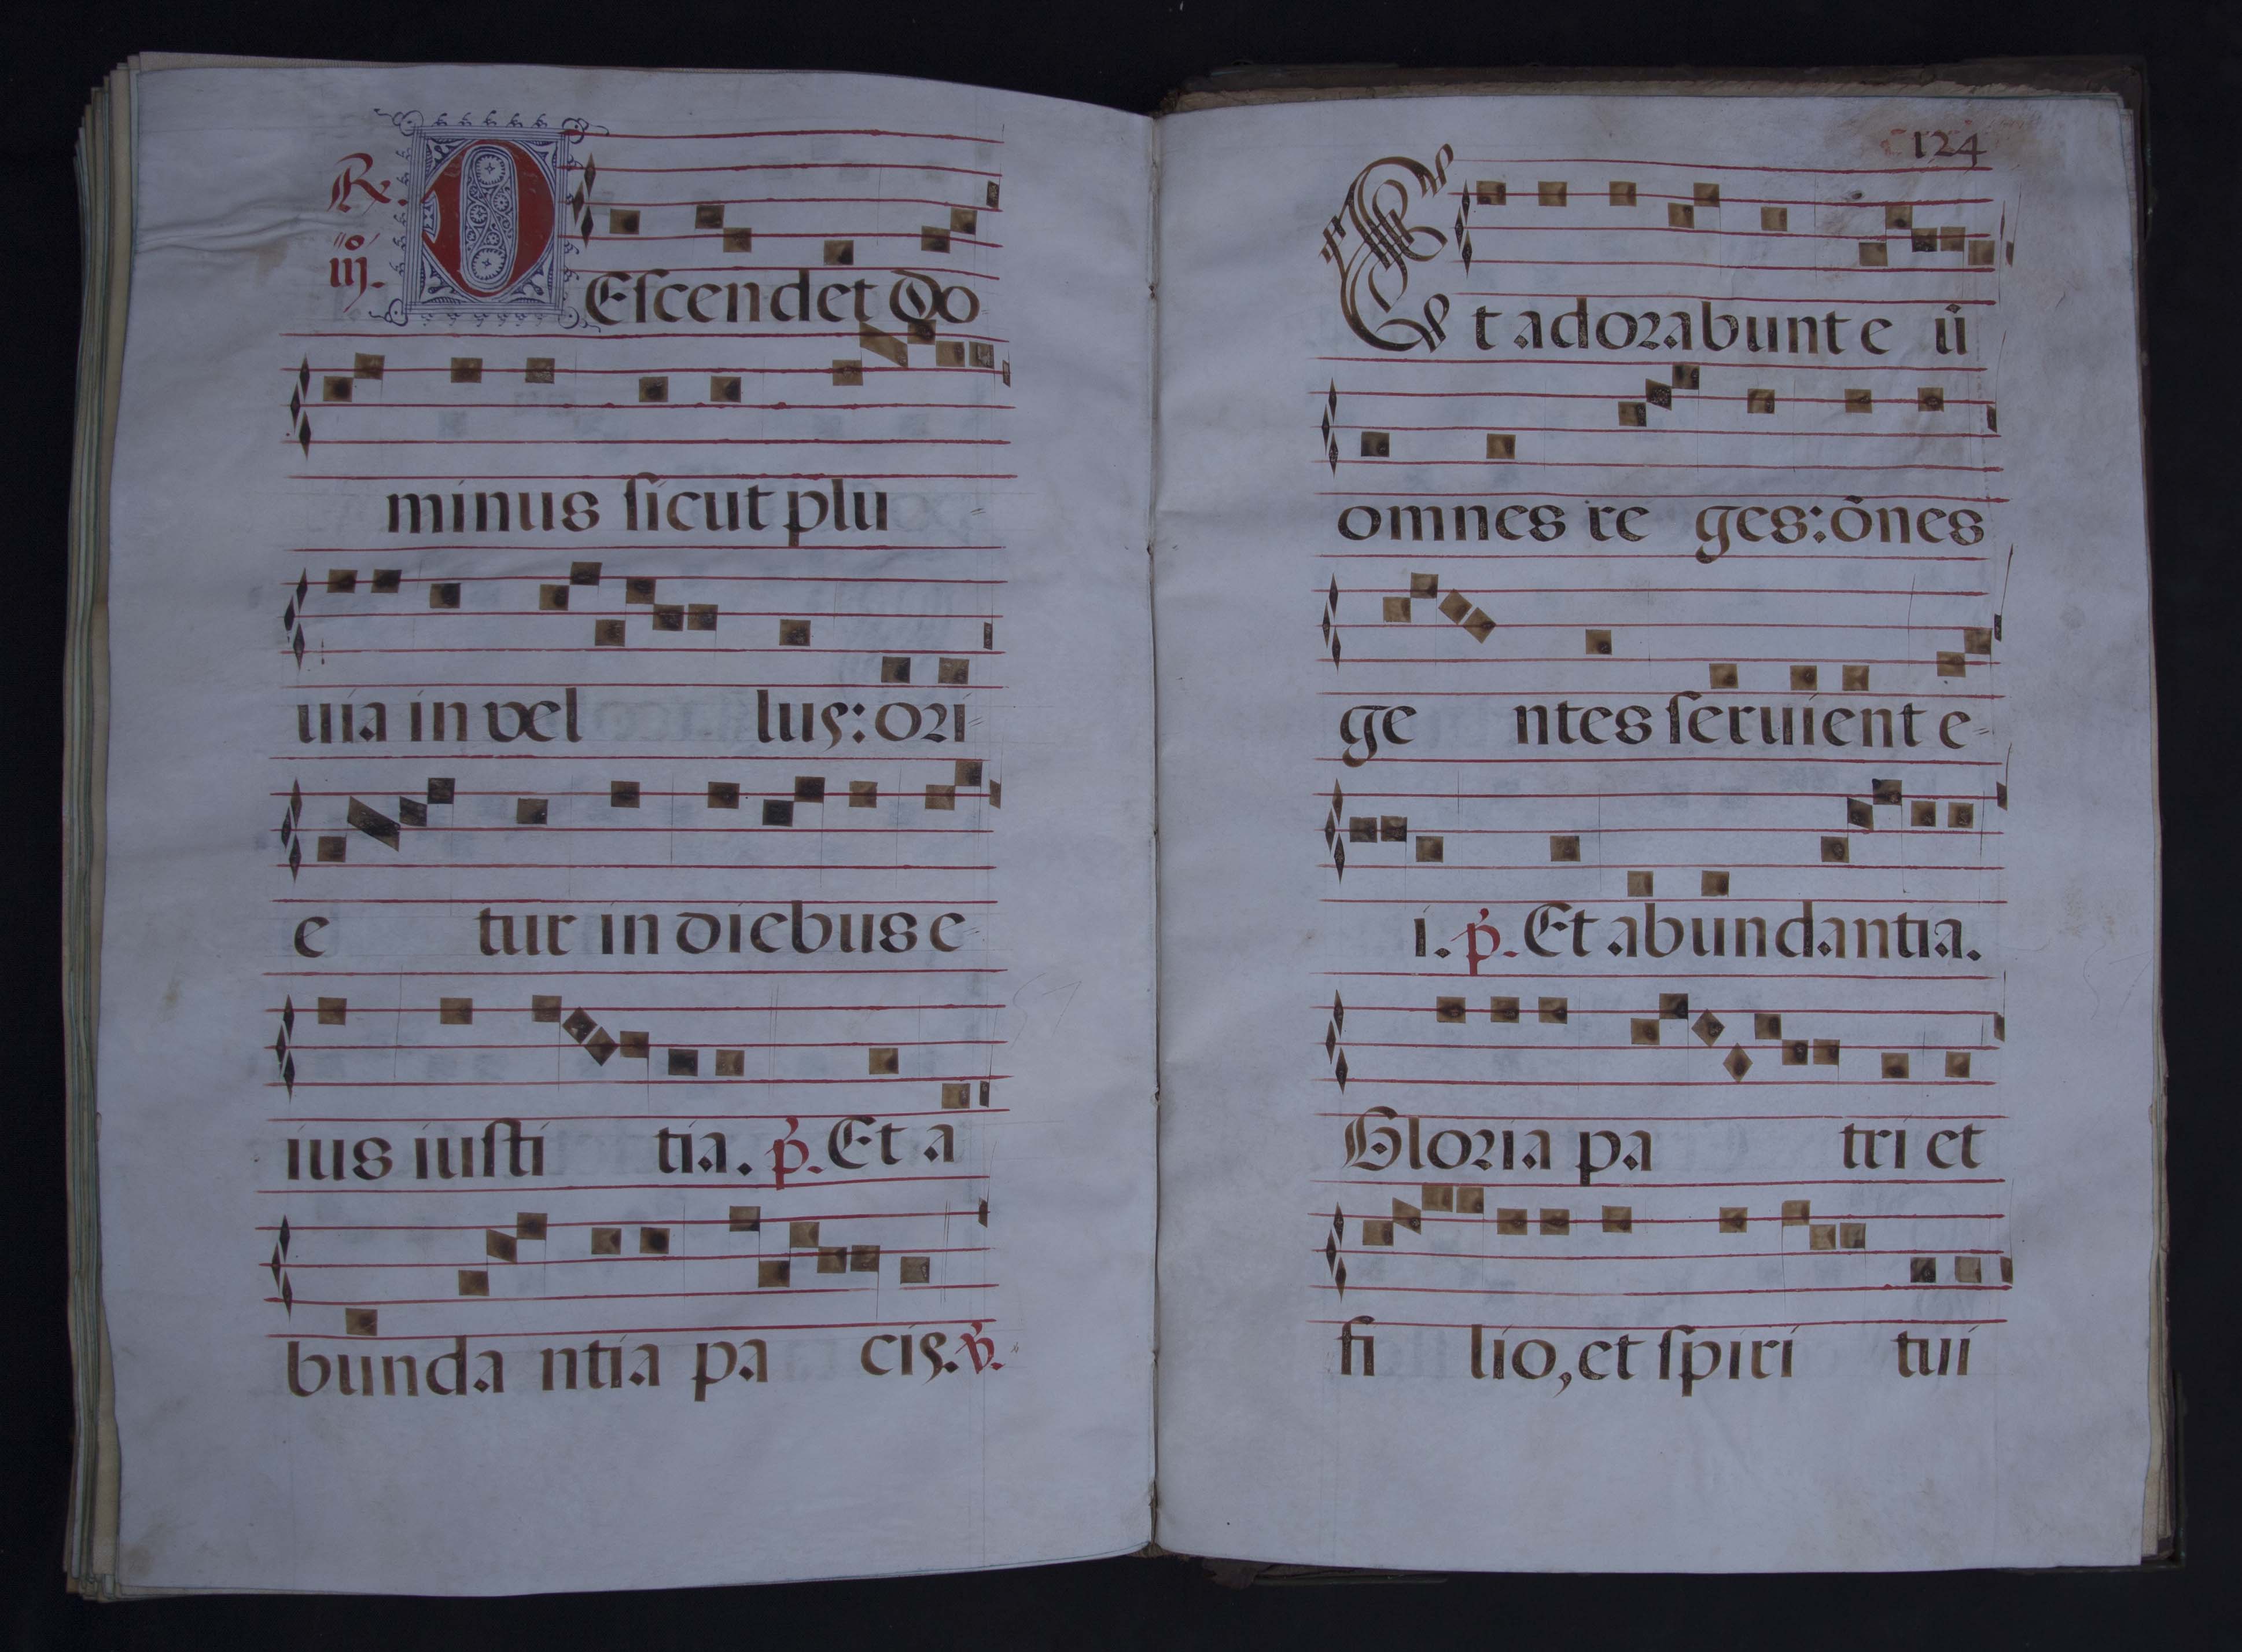 ℟.
iij.º
DEſcendet Do
minus ſicut plu
uia in vel lus: ori
e tur in diebus e
ius iuſti tia. p̃. Et a
bunda ntia pa cis. ṽ.
124
Et adorabunt e ũ
omnes re ges: õnes
ge ntes ſeruient e
i. p̃. Et abundantia.
Gloria pa tri et
fi lio, et ſpiri tui